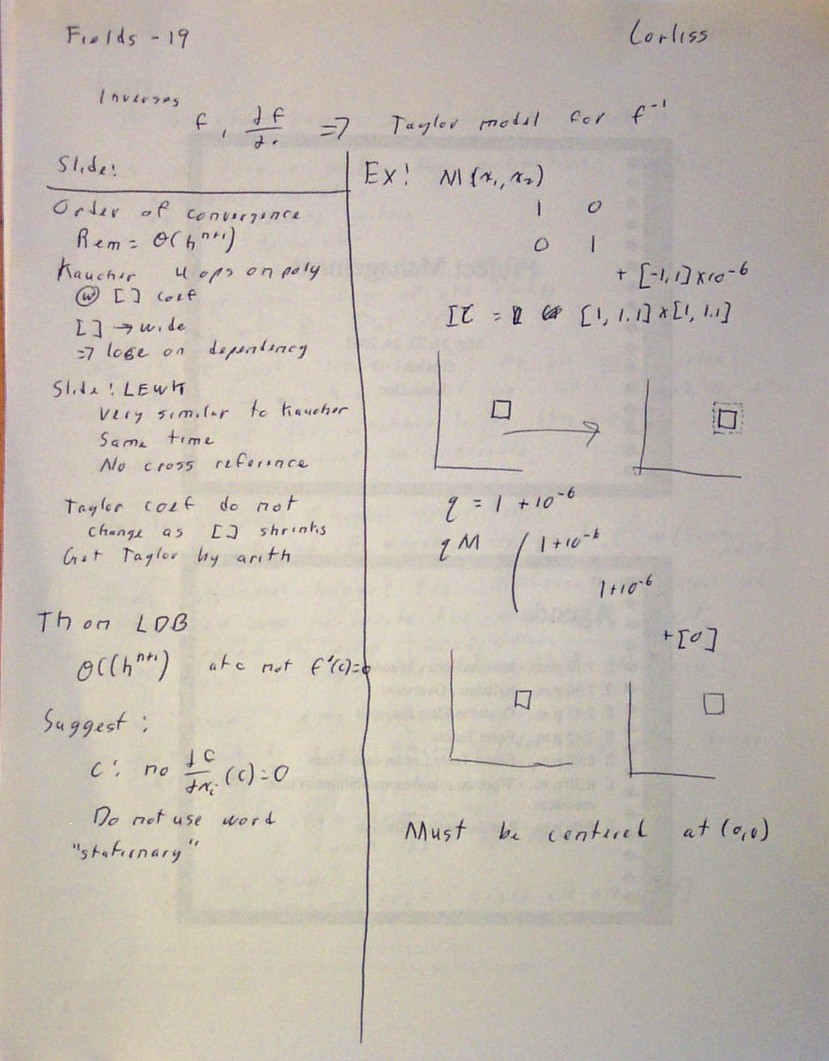 Fields - 19
Corliss
Inverses
f, ∂f/∂. => Taylor model for f⁻¹
Slide!
Order of convergence
Rem = O(hⁿ⁺¹)
Kaucher 4 ops on poly
@ [] coef
[] → wide
=> lose on dependency
Slide! LEWK
Very similar to Kaucher
Same time
No cross reference
Taylor coef do not
change as [] shrinks
Get Taylor by arith
Th on LDB
O((hⁿ⁺¹) at c not f'(c)=0
Suggest:
C: no ∂C/∂xᵢ (c) = 0
Do not use word
"stationary"
Ex! M(x₁, x₂)
1 0
0 1
+ [-1,1] x 10⁻⁶
= [1, 1.1] x [1, 1.1]
q = 1 + 10⁻⁶
q M ( 1+10⁻⁶
1+10⁻⁶
+[0]
Must be centered at (0,0)
Project Management
Agenda